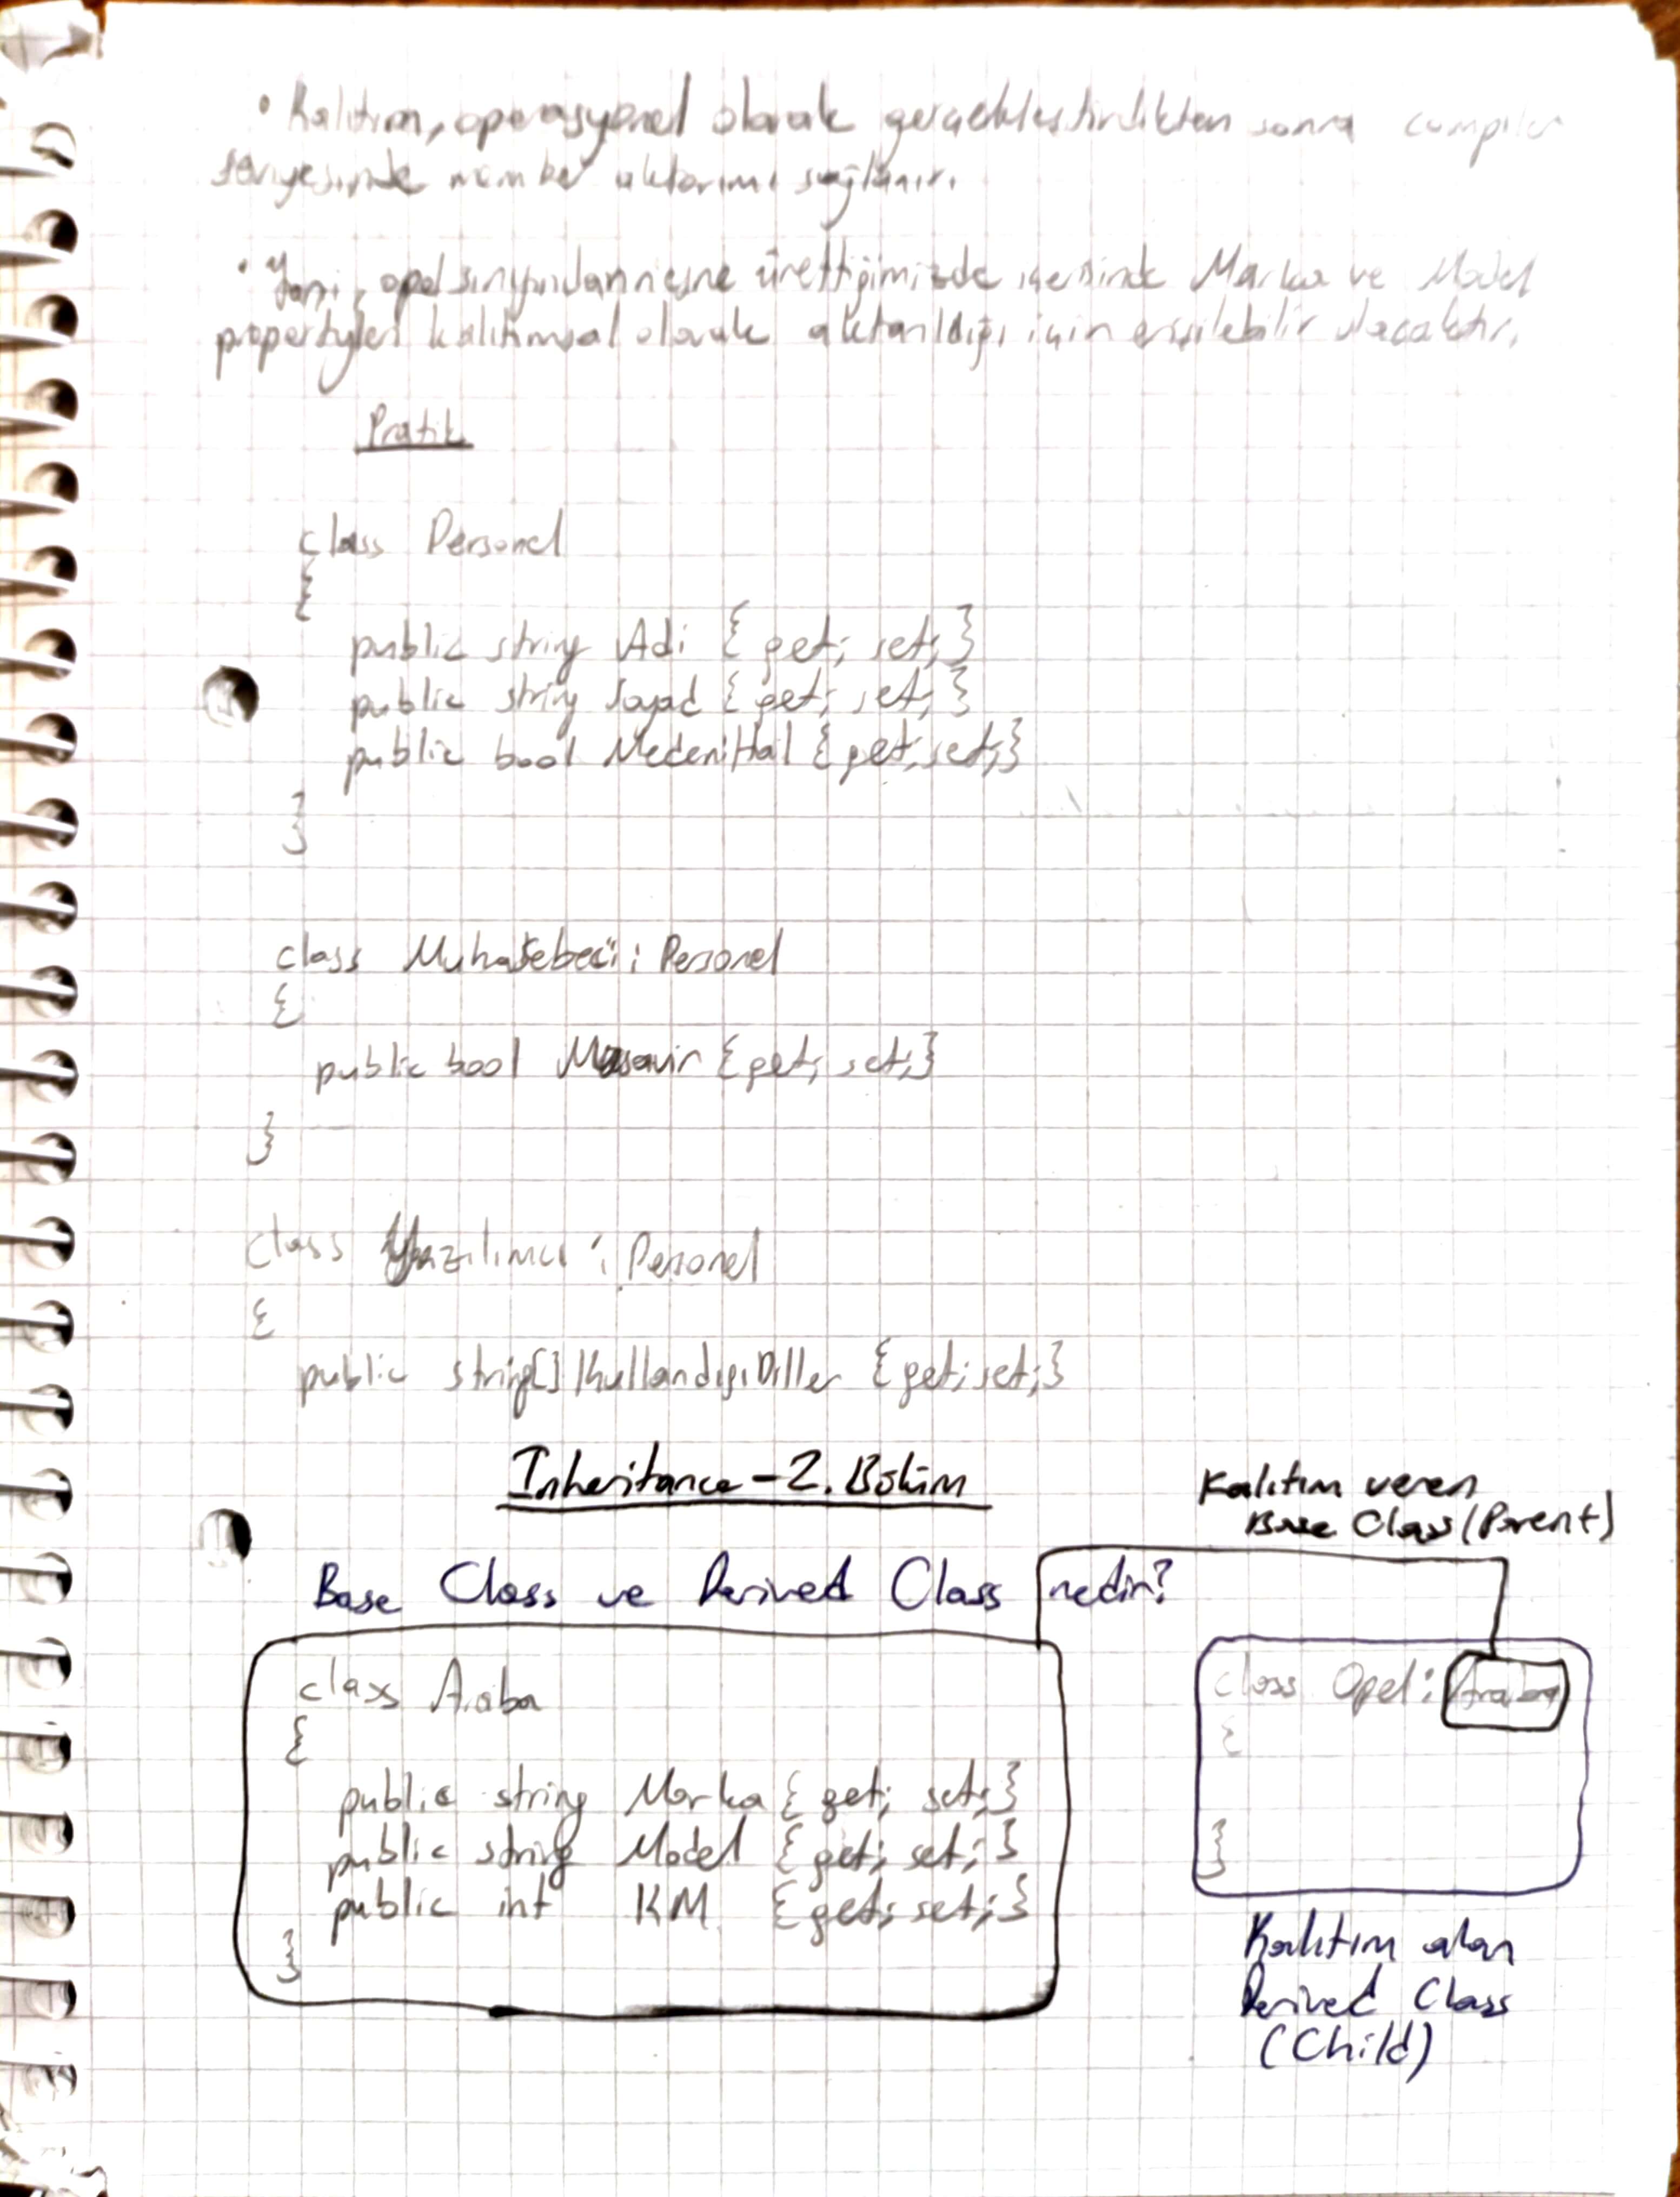 • Kalıtım, operasyonel olarak gerçekleştirdikten sonra compiler
seviyesinde member aktarımı sağlanır.
• Yani, opel sınıfından nesne ürettiğimizde içerisinde Marka ve Model
propertyleri kalıtımsal olarak aktarıldığı için erişilebilir olacaktır.
Pratik
class Personel
{
public string Adi { get; set; }
public string Soyad { get; set; }
public bool MedeniHal { get; set; }
}
class Muhasebeci : Personel
{
public bool Musavir { get; set; }
}
class Yazılımcı : Personel
{
public string[] KullandıgıDiller { get; set; }
Inheritance - 2. Bölüm
Kalıtım veren
Base Class (Parent)
Base Class ve Derived Class nedir?
class Araba
{
public string Marka { get; set; }
public string Model { get; set; }
public int KM { get; set; }
}
class Opel : Araba
{
}
Kalıtım alan
Derived Class
(Child)